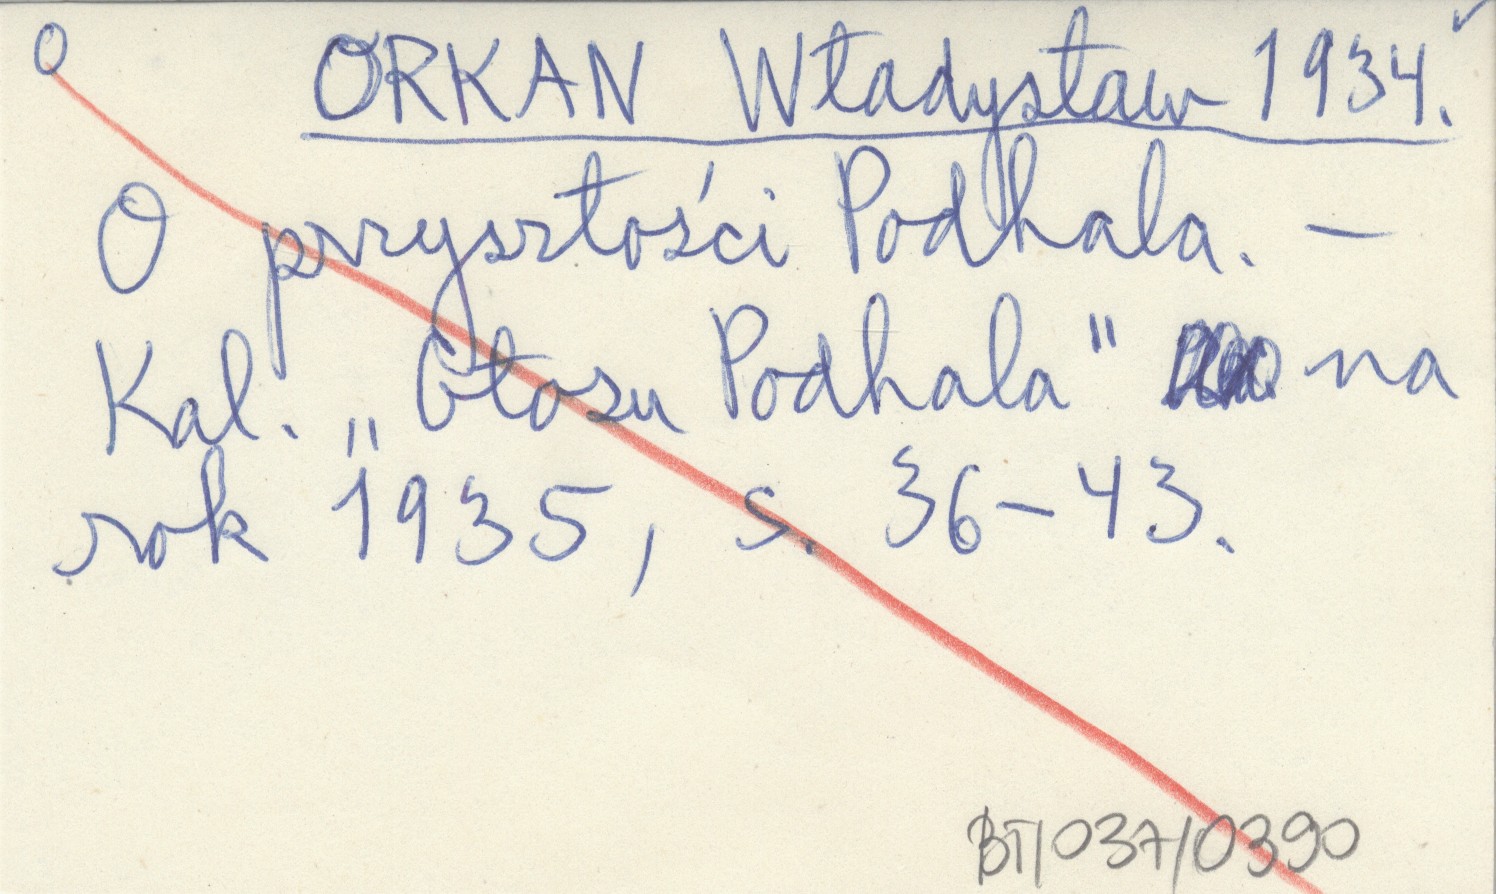 O ORKAN Władysław 1934.
O przyszłości Podhala. –
Kal. „Głosu Podhala" na
rok 1935, s. 36–43.
BT/037/0390